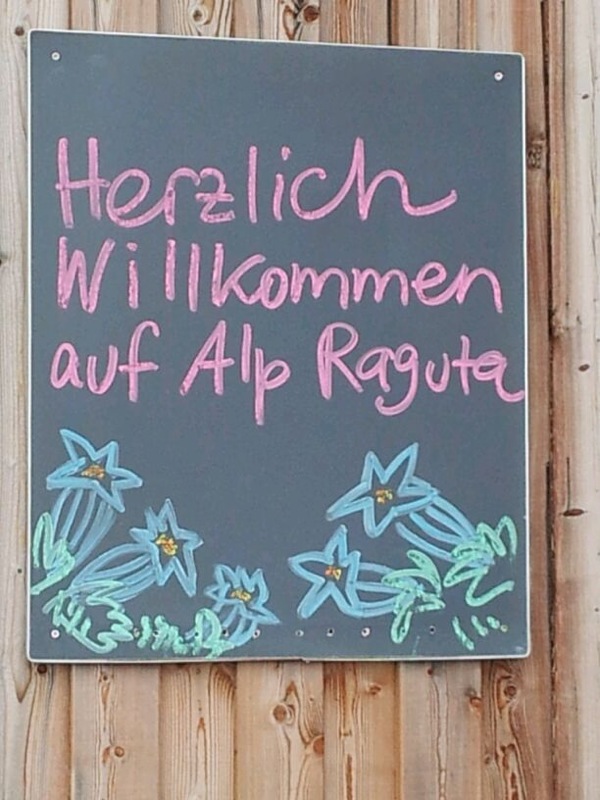 Herzlich
Willkommen
auf Alp Raguta